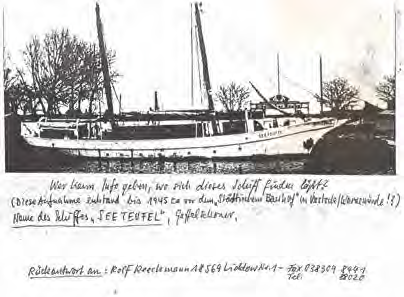 SEETEUFEL
Wer kann Info geben, wo sich dieses Schiff finden läßt?
(Diese Aufnahme entstand bis 1945 ca vor dem "Städtischem Bauhof" in Rostock/Warnemünde!?)
Name des Schiffes "SEETEUFEL", Gaffelschoner,
Rückantwort an: Rolf 18569 Nr. 1 - Fax 038309 8441
Tel: